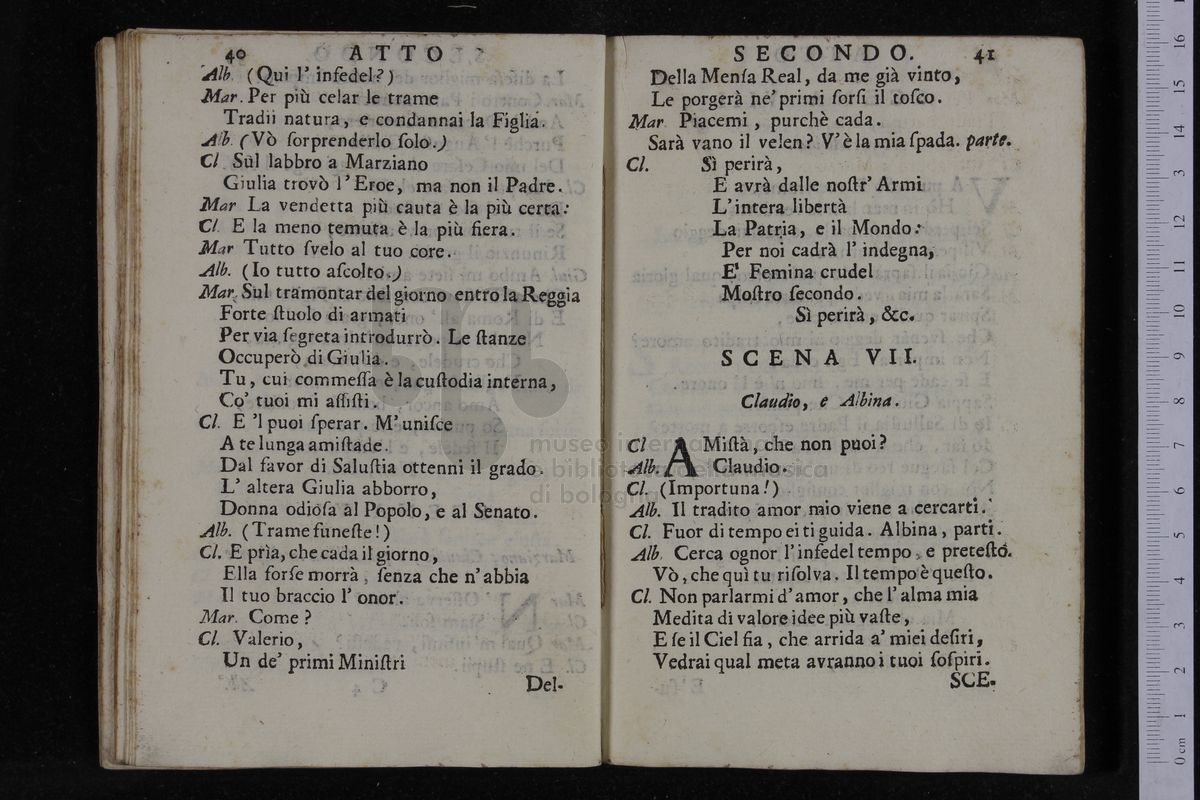 40 ATTO
Alb. (Qui l' infedel?)
Mar. Per più celar le trame
Tradii natura, e condannai la Figlia.
Alb. (Vò ſorprenderlo ſolo.)
Cl. Sul labbro a Marziano
Giulia trovò l'Eroe, ma non il Padre.
Mar La vendetta più cauta è la più certa:
Cl. E la meno temuta è la più fiera.
Mar Tutto ſvelo al tuo core.
Alb. (Io tutto aſcolto.)
Mar. Sul tramontar del giorno entro la Reggia
Forte ſtuolo di armati
Per via ſegreta introdurrò. Le ſtanze
Occuperò di Giulia.
Tu, cui commeſſa è la cuſtodia interna,
Co' tuoi mi aſſiſti.
Cl. E 'l puoi ſperar. M'uniſce
A te lunga amiſtade.
Dal favor di Saluſtia ottenni il grado.
L' altera Giulia abborro,
Donna odioſa al Popolo, e al Senato.
Alb. (Trame funeſte!)
Cl. E prìa, che cada il giorno,
Ella forſe morrà, ſenza che n'abbia
Il tuo braccio l' onor.
Mar. Come?
Cl. Valerio,
Un de' primi Miniſtri
Del-
SECONDO. 41
Della Menſa Real, da me già vinto,
Le porgerà ne' primi ſorſi il toſco.
Mar Piacemi, purchè cada.
Sarà vano il velen? V'è la mia ſpada. parte.
Cl. Sì perirà,
E avrà dalle noſtr' Armi
L'intera libertà
La Patria, e il Mondo:
Per noi cadrà l' indegna,
E' Femina crudel
Moſtro ſecondo.
Sì perirà, &c.
SCENA VII.
Claudio, e Albina.
Cl AMiſtà, che non puoi?
Alb. Claudio.
Cl. (Importuna!)
Alb. Il tradito amor mio viene a cercarti.
Cl. Fuor di tempo ei ti guida. Albina, parti.
Alb. Cerca ognor l'infedel tempo, e preteſto.
Vò, che quì tu riſolva. Il tempo è queſto.
Cl. Non parlarmi d'amor, che l'alma mia
Medita di valore idee più vaſte,
E ſe il Ciel fia, che arrida a' miei deſiri,
Vedrai qual meta avranno i tuoi ſoſpiri.
SCE-
museo internazionale
e biblioteca della musica
di bologna